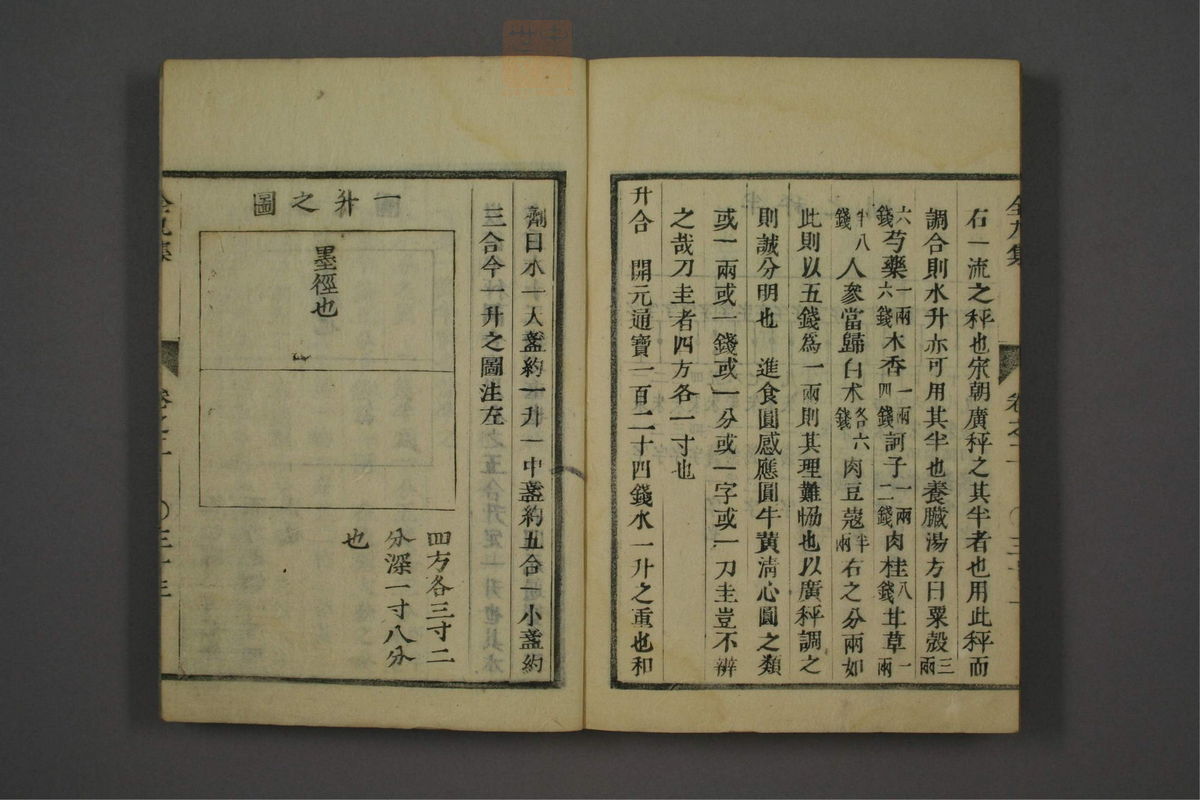 右一流之秤也宋朝廣秤之其半者也用此秤而
調合則水升亦可用其半也養臟湯方曰粟殼三兩
六錢芍藥一兩六錢木香一兩四錢訶子一兩二錢肉桂八錢甘草一兩
半八錢人參當歸白朮各六錢肉豆蔻半兩右之分兩如
此則以五錢為一兩則其理難恊也以廣秤調之
則誠分明也 進食圓感應圓牛黃清心圓之類
或一兩或一錢或一分或一字或一刀圭豈不辨
之哉刀圭者四方各一寸也
升合 開元通寶一百二十四錢水一升之重也和
劑曰水一大盞約一升一中盞約五合一小盞約
三合今一升之圖注左
一升之圖
墨徑也
四方各三寸二
分深一寸八分
也